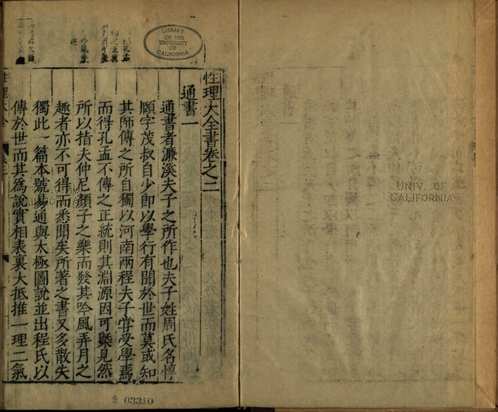 性理大全書卷之二
通書一
通書者濂溪夫子之所作也夫子姓周氏名惇
頤字茂叔自少即以學行有聞於世而莫或知
其師傳之所自獨以河南兩程夫子嘗受學焉
而得孔孟不傳之正統則其淵源因可槩見然
所以指夫仲尼顏子之樂而發其吟風弄月之
趣者亦不可得而悉聞矣所著之書又多散失
獨此一篇本號易通與太極圖說並出程氏以
傳於世而其為說實相表裏大抵推一理二氣
LIBRARY
OF THE
UNIVERSITY
OF
CALIFORNIA
UNIV. OF
CALIFORNIA
03310